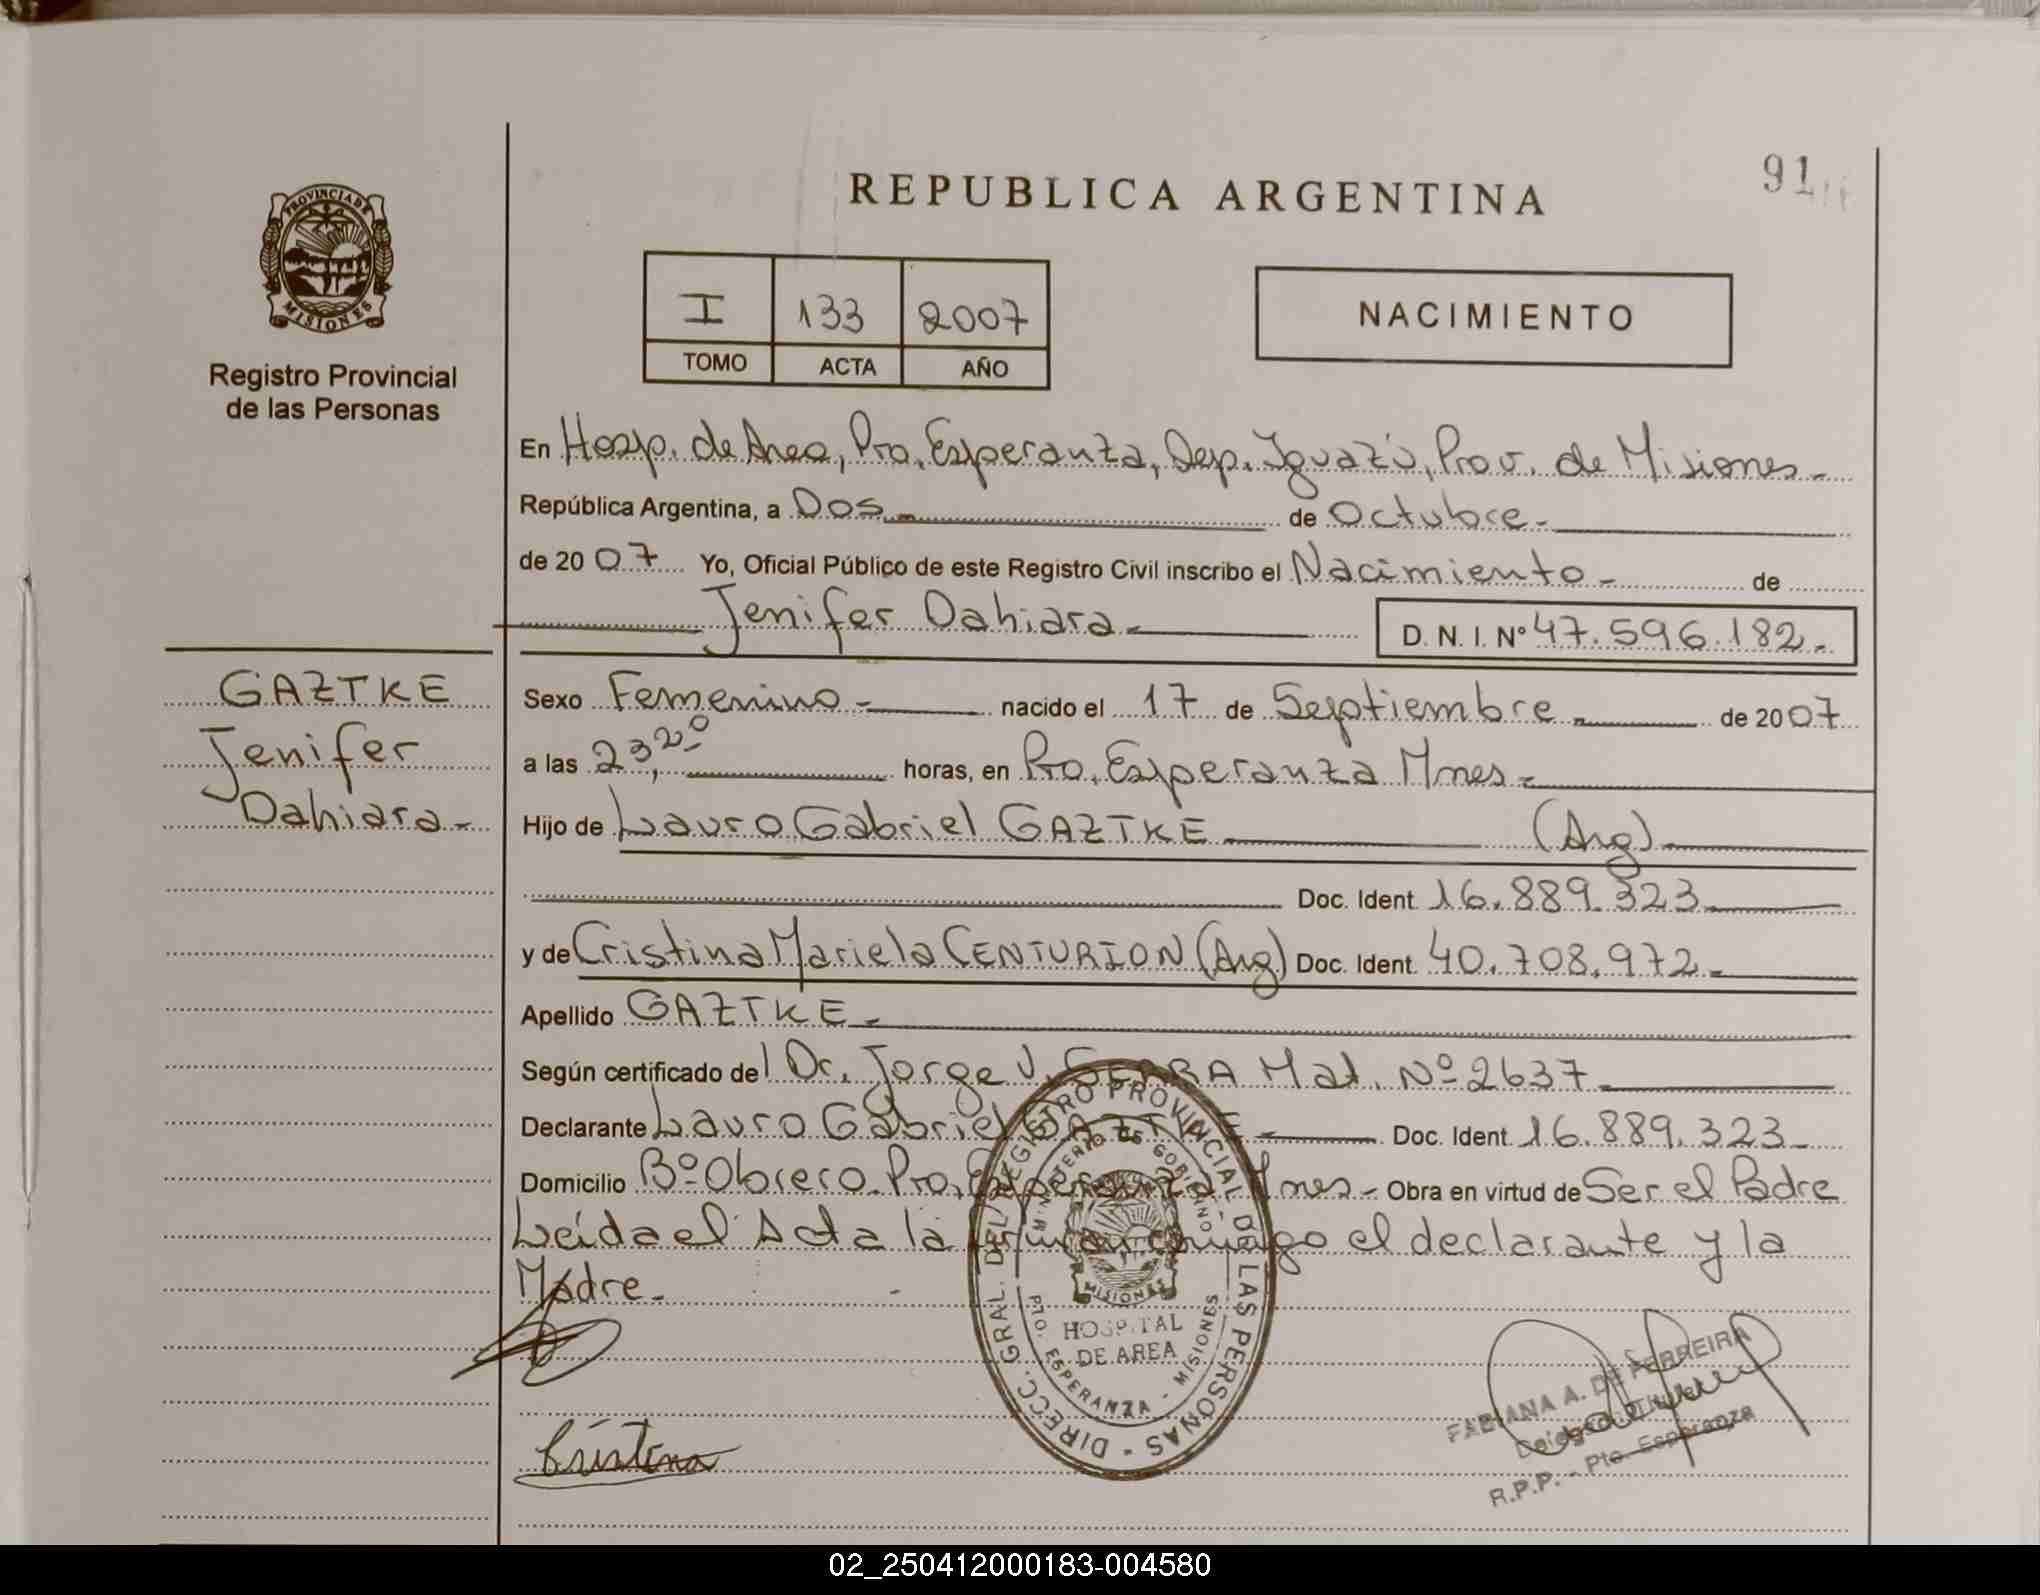 REPUBLICA ARGENTINA
91
PROVINCIA DE
MISIONES
Registro Provincial
de las Personas
I 133 2007
TOMO ACTA AÑO
NACIMIENTO
En Hosp. de Area, Pto. Esperanza, Dep. Iguazú, Prov. de Misiones-
República Argentina, a Dos- de Octubre-
de 2007 Yo, Oficial Público de este Registro Civil inscribo el Nacimiento- de
Jenifer Dahiara- D. N. I. Nº 47.596.182.-
GAZTKE
Jenifer
Dahiara-
Sexo Femenino- nacido el 17 de Septiembre- de 2007
a las 23,20 horas, en Pto. Esperanza Mnes-
Hijo de Lauro Gabriel GAZTKE (Arg)
Doc. Ident. 16.889.323
y de Cristina Mariela CENTURION (Arg) Doc. Ident. 40.708.972-
Apellido GAZTKE-
Según certificado del Dr. Jorge J. SERRA Mat. Nº 2637
Declarante Lauro Gabriel GAZTKE Doc. Ident. 16.889.323-
Domicilio Bº Obrero. Pto. Esperanza Mnes.- Obra en virtud de Ser el Padre
Leída el Acta la firman conmigo el declarante y la
Madre-
DIRECC. GRAL. DEL REGISTRO PROVINCIAL DE LAS PERSONAS -
MINISTERIO DE GOBIERNO
MISIONES
HOSPITAL
DE AREA
PTO. ESPERANZA - MISIONES
Cristina
FABIANA A. DE FERREIRA
Delegada Titular
R.P.P. - Pto. Esperanza
02_250412000183-004580